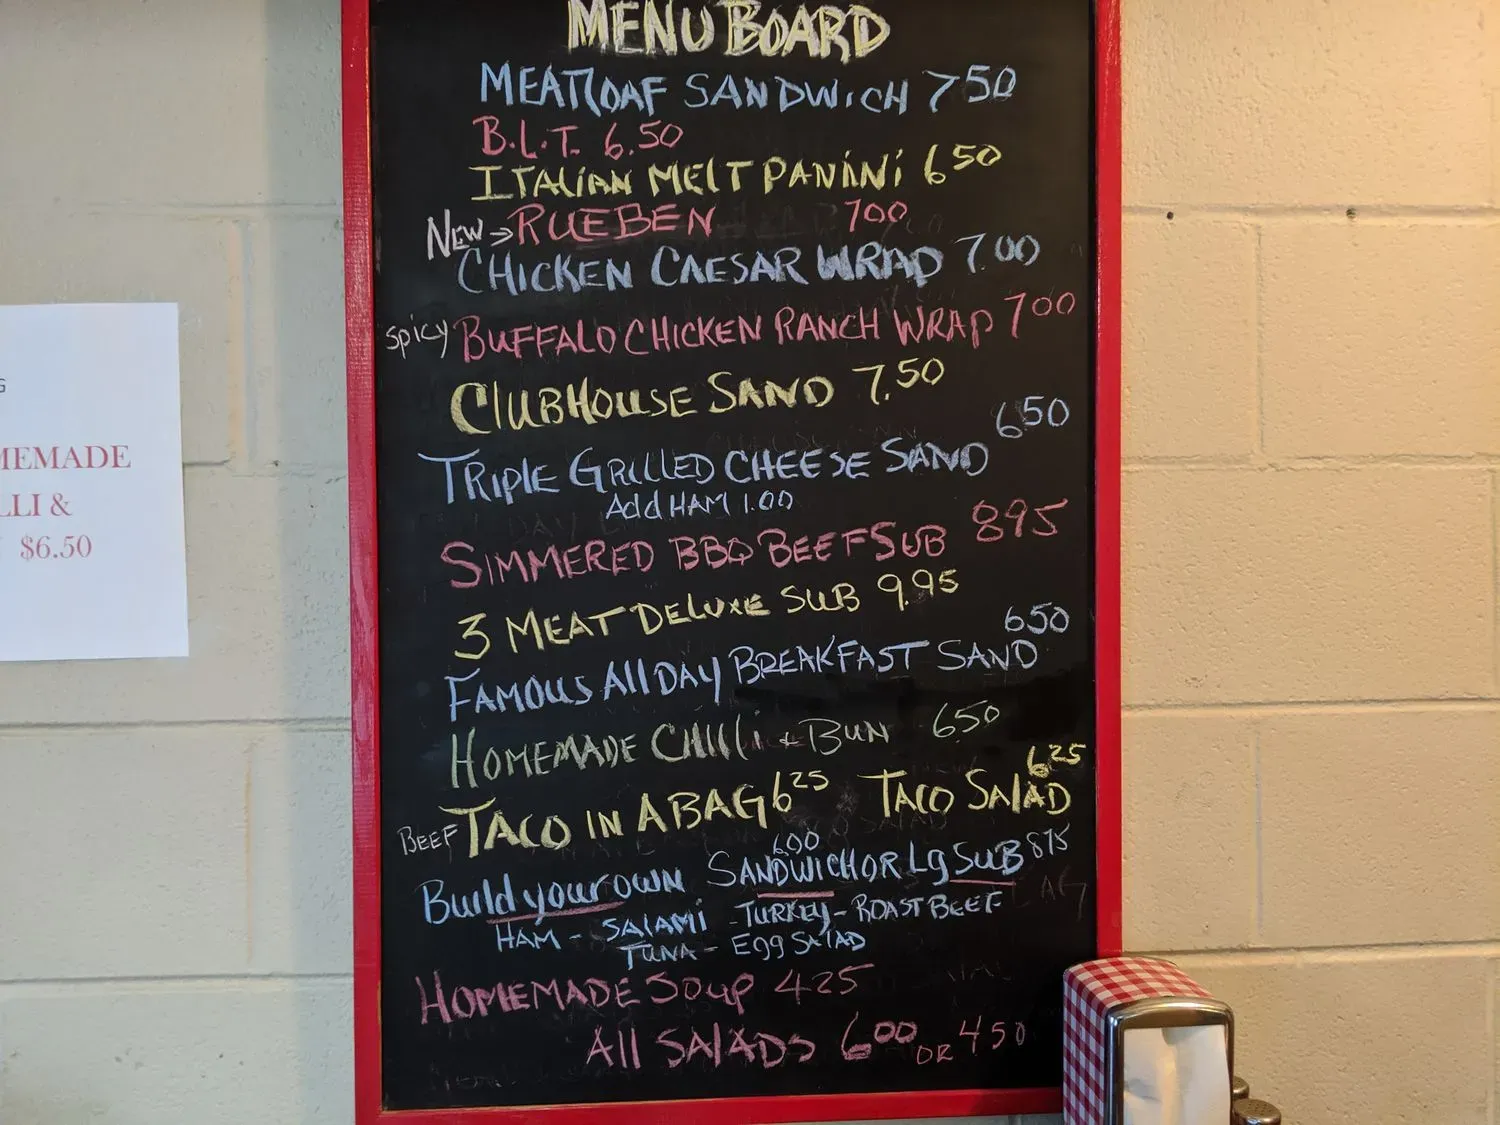 MENU BOARD
MEATLOAF SANDWICH 7 50
B.L.T. 6.50
ITALIAN MELT PANINI 6 50
NEW → RUEBEN 700
CHICKEN CAESAR WRAP 7.00
Spicy BUFFALO CHICKEN RANCH WRAP 7 00
CLUBHOUSE SAND 7.50
TRIPLE GRILLED CHEESE SAND 6 50
Add HAM 1.00
SIMMERED BBQ BEEF SUB 895
3 MEAT DELUXE SUB 9.95
FAMOUS All DAY BREAKFAST SAND 650
HOMEMADE CHILLI & BUN 650
BEEF TACO IN A BAG 6 25 TACO SALAD 6 25
Build your OWN SANDWICH 600 OR Lg SUB 875
HAM - SALAMI - TURKEY - ROAST BEEF
TUNA - Egg SALAD
HOMEMADE SOUP 425
All SALADS 6 00 OR 450
G
MEMADE
LLI &
$6.50